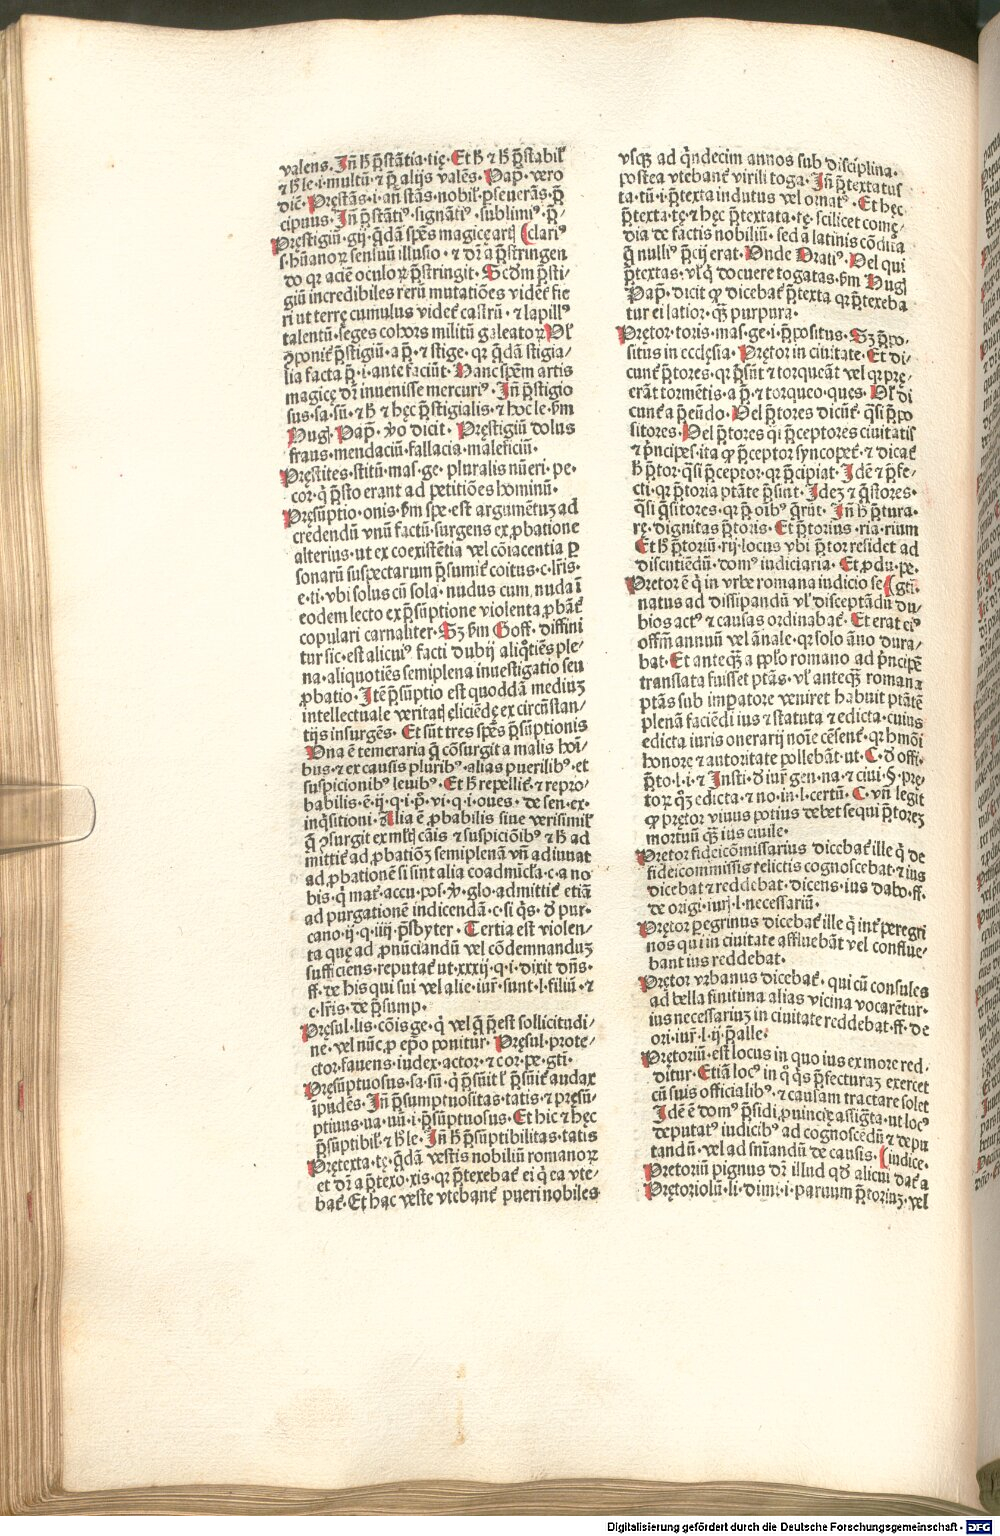 valens. Jn̄ h̄ p̄stātia·tię. Et h̄ ⁊ h̄ p̄stabil̓
⁊ h̄ le·i·multū·⁊ p̄ alijs valēs. Pap̄ vero
dic̄. Pręstās·i·an̄ stās·nobil̓·pseuerās·p̄
cipuus. Jn̄ p̄stāti⁹·signāti⁹·sublimi⁹·p̄/
Pręstigiū·gij·q̄dā spēs magicę artꝭ (clari⁹
s·hūanoꝝ sensuū illusio·⁊ dr̄ a p̄stringen
do qꝛ aciē oculoꝝ p̄stringit. Scd̄m p̄sti
giū incredibiles rerū mutatiōes videt̄ fie
ri ut terrę cumulus videt̄ castrū·⁊ lapill⁹
talentū·seges cohors militū galeatoꝝ Vl̓
ꝯponit̄ p̄stigiū·a p̄·⁊ stige·qꝛ q̄dā stigia/
lia facta p̄·i·ante faciūt. Hanc spēm artis
magicę dr̄ inuenisse mercuri⁹. Jn̄ p̄stigio
sus·sa·sū·⁊ h̄ ⁊ hęc p̄stigialis·⁊ hoc le·s̄m
Hug̓. Pap̄ v̄o dicit. Pręstigiū dolus
fraus·mendaciū·fallacia·maleficiū.
Pręstites·stitū·mas·ge·pluralis nūeri·pe·
cor·q̄ p̄sto erant ad petitiōes hominū.
Pręsūptio·onis·s̄m spe·est argumētuꝫ ad
credendū vnū factū·surgens ex ꝓbatione
alterius·ut ex coexistētia vel cōiacentia ꝑ
sonarū suspectarum p̄sumit̄ coitus·c·lr̄is·
e·ti·vbi solus cū sola·nudus cum nuda ī
eodem lecto ex p̄sūptione violenta ꝓbāt̄
copulari carnaliter. Sꝫ s̄m Goff. diffini
tur sic·est alicui⁹ facti dubij aliq̄tiēs ple/
na·aliquotiēs semiplena inuestigatio seu
ꝓbatio. Jtē p̄sūptio est quoddā mediuꝫ
intellectuale veritatꝭ eliciēdę ex circūstan/
tijs insurgēs. Et sūt tres spēs p̄sūptionis
Vna ē temeraria q̄ cōsurgit a malis hoī/
bus·⁊ ex causis pluribꝰ·alias puerilibꝰ·et
suspicionibꝰ leuibꝰ. Et h̄ repellit̄·⁊ repro/
habilis·ē·ij·q·i·p̄·vi·q·i·oues·de sen·ex·
inq̄sitioni. Alia ē ꝓbabilis siue verisimil̓
q̄ ꝯsurgit ex mltꝭ cāis ⁊ suspiciōibꝰ ⁊ h̄ ad
mittit̄ ad ꝓbatiōꝫ semiplenā vn̄ adiuuat
ad ꝓbationē si sint alia coadmīcla·c·a no
bis·q̄ mat̄·accu·pos·v̓·glo·admittit̄ etiā
ad purgationē indicendā·c·si q̄s·d̄ pur·
cano·ij·q·iiij·p̄sbyter. Tertia est violen/
ta quę ad ꝓnūciandū vel cōdemnanduꝫ
sufficiens·reputat̄ ut·xxxij·q·i·dixit dn̄s·
ff·de his qui sui vel alie·iur̓·sunt·l·filiū·⁊
c·lr̄is·de p̄sump.
Pręsul·lis·cōis ge·q̄ vel q̄ p̄est sollicitudi/
ne·vel nūc ꝓ ep̄o ponitur. Pręsul·prote/
ctor·fauens·iudex·actor·⁊ cor·pe·gti·
Pręsūptuosus·sa·sū·q̄ p̄sūit l̓ p̄sūit̄ audax
īpudēs. Jn̄ p̄sumptuositas·tatis·⁊ pręsū/
ptiuus·ua·uū·i·p̄sūptuosus. Et hic ⁊ hęc
p̄sūptibil̓·⁊ h̄ le. Jn̄ h̄ p̄sūptibilitas·tatis
Pręrexta·tę·q̄dā vestis nobiliū romanoꝝ
et dr̄ a p̄texo·xis·qꝛ p̄texebat̄ ei q̄ ea vte·
bat̄. Et hac veste vtebant̄ pueri nobiles
vsqꝫ ad q̄ndecim annos sub disciplina.
postea vtebant̄ virili toga. Jn̄ p̄textatus
ta·tū·i·p̄texta indutus vel ornat⁹. Et hęc
p̄texta·tę·⁊ hęc p̄textata·tę·scilicet comę/
dia de factis nobiliū·sed a latinis cōdita
q̄ nulli⁹ p̄cij erat. Vnde Orati⁹. Vel qui
p̄textas·vl̓ q̄ docuere togatas·s̄m Hug̓
Pap̄. dicit ꝙ dicebat̄ p̄texta qꝛ p̄texeba
tur ei latior·qꝫ̄ purpura.
Pretor·toris·mas·ge·i·p̄positus. Sꝫ p̄po/
situs in ecclęsia. Prętor in ciuitate. Et di/
cunt̄ p̄tores·qꝛ p̄sūt ⁊ torqueāt vel qꝛ prę/
erāt tormētis·a p̄·⁊ torqueo·ques. Vl̓ di
cunt̄ a p̄eūdo. Vel p̄tores dicūt̄·q̄si p̄po
sitores. Vel p̄tores q̄si p̄ceptores ciuitatis
⁊ p̓ncipes·ita ꝙ p̄ceptor syncopet̄·⁊ dicat̄
h̄ p̄tor·q̄si p̄ceptor·qꝛ p̄cipiat. Jdē ⁊ p̄fe/
cti·qꝛ p̄toria ptāte p̄sint. Jdeꝫ ⁊ q̄stores·
q̄si q̄sitores·qꝛ p̄ oībꝰ q̄rūt. Jn̄ h̄ p̄tura·
rę·dignitas p̄toris. Et p̄torius·ria·rium
Et h̄ p̄toriū·rij·locus vbi p̄tor residet ad
discutiēdū·dom⁹ iudiciaria. Et ꝓdu·pe·
Pretor ē q̄ in vrbe romana iudicio se(gti·
natus ad dissipandū vl̓ disceptādū du/
bios act⁹ ⁊ causas ordinabat̄. Et erat ei⁹
offm̄ annuū vel ānale·qꝛ solo āno dura/
bat. Et anteqꝫ̄ a pplo romano ad p̓ncipē
translata fuisset ptās·vl̓ anteqꝫ̄ romana
ptās sub impatore veniret habuit ptātē
plenā faciēdi ius ⁊ statuta ⁊ edicta·cuius
edicta iuris onerarij noīe cēsent̄·qꝛ hmōi
honore ⁊ autoritate pollebāt·ut·C·d̄ offi·
p̄to·l·i·⁊ Justi·d̄ iur̓ gen·na·⁊ ciui·§·prę/
toꝝ qꝫ edicta·⁊ no·in·l·certū·C·vn̄ legit̄
ꝙ prętor viuus potius debet sequi p̄toreꝫ
mortuū qꝫ̄ ius ciuile.
Prętor fideicōmissarius dicebat̄ ille q̄ de
fideicommissis relictis cognoscebat·⁊ ius
dicebat ⁊ reddebat·dicens·ius dabo·ff·
de origi·iurꝭ·l·necessariū.
Prętor pegrinus dicebat̄ ille q̄ int̄ peregri
nos qui in ciuitate affluebāt vel conflue/
bant ius reddebat.
Prętor vrbanus dicebat̄·qui cū consules
ad bella finitima alias vicina vocarētur·
ius necessariuꝫ in ciuitate reddebat·ff·de
ori·iur̓·l·ij·p̄alle.
Prętoriū·est locus in quo ius ex more red/
ditur. Etiā loc⁹ in q̄ q̄s p̄fecturaꝫ exercet
cū suis officialibꝰ·⁊ causam tractare solet
Jdē ē dom⁹ p̄sidi ꝓuincię assig̓ta·ut loc⁹
deputat⁹ iudicibꝰ ad cognoscēdū ⁊ depu
tandū·vel ad sn̄iandū de causis. (iudice.
Pretoriū pignus dr̄ illud qd̓ alicui dat̄ a
Prętoriolū·li·dimi·i·paruum p̄toriuꝫ·vel
Digitalisierung gefördert durch die Deutsche Forschungsgemeinschaft - DFG